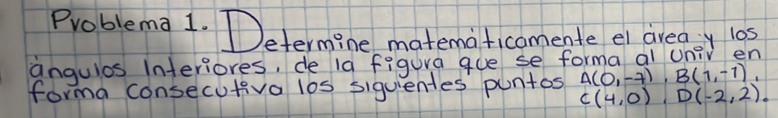 Problema 1. Determine matemáticamente el área y los
ángulos Interiores, de la figura que se forma al Unir en
forma consecutiva los siguientes puntos A(0,-7), B(1,-1),
C(4,0), D(-2,2).